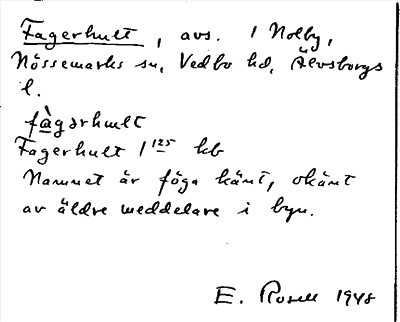 Fagerhult, avs. i Nolby,
Nössemarks sn, Vedbo hd, Älvsborgs
l.
fàgərhult
Fagerhult 1/125 kb
Namnet är föga känt, okänt
av äldre meddelare i byn.
E. Rosell 1948